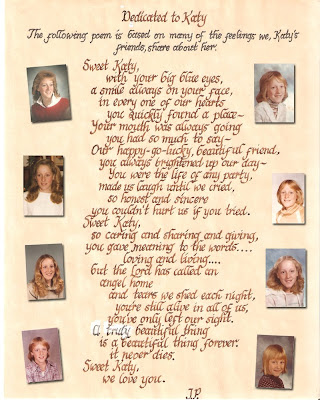 Dedicated to Katy
The following poem is based on many of the feelings we, Katy's
friends, share about her.
Sweet Katy,
with your big blue eyes,
a smile always on your face,
in every one of our hearts
you quickly found a place~
Your mouth was always going
you had so much to say~
Our happy-go-lucky, beautiful friend,
you always brightened up our day~
You were the life of any party,
made us laugh until we cried,
so honest and sincere
you couldn't hurt us if you tried.
Sweet Katy,
so caring and sharing and giving,
you gave meaning to the words....
loving and living....
but the Lord has called an
angel home
and tears we shed each night,
you're still alive in all of us,
you've only left our sight.
A truly beautiful thing
is a beautiful thing forever.
it never dies.
Sweet Katy,
we love you.
J.P.